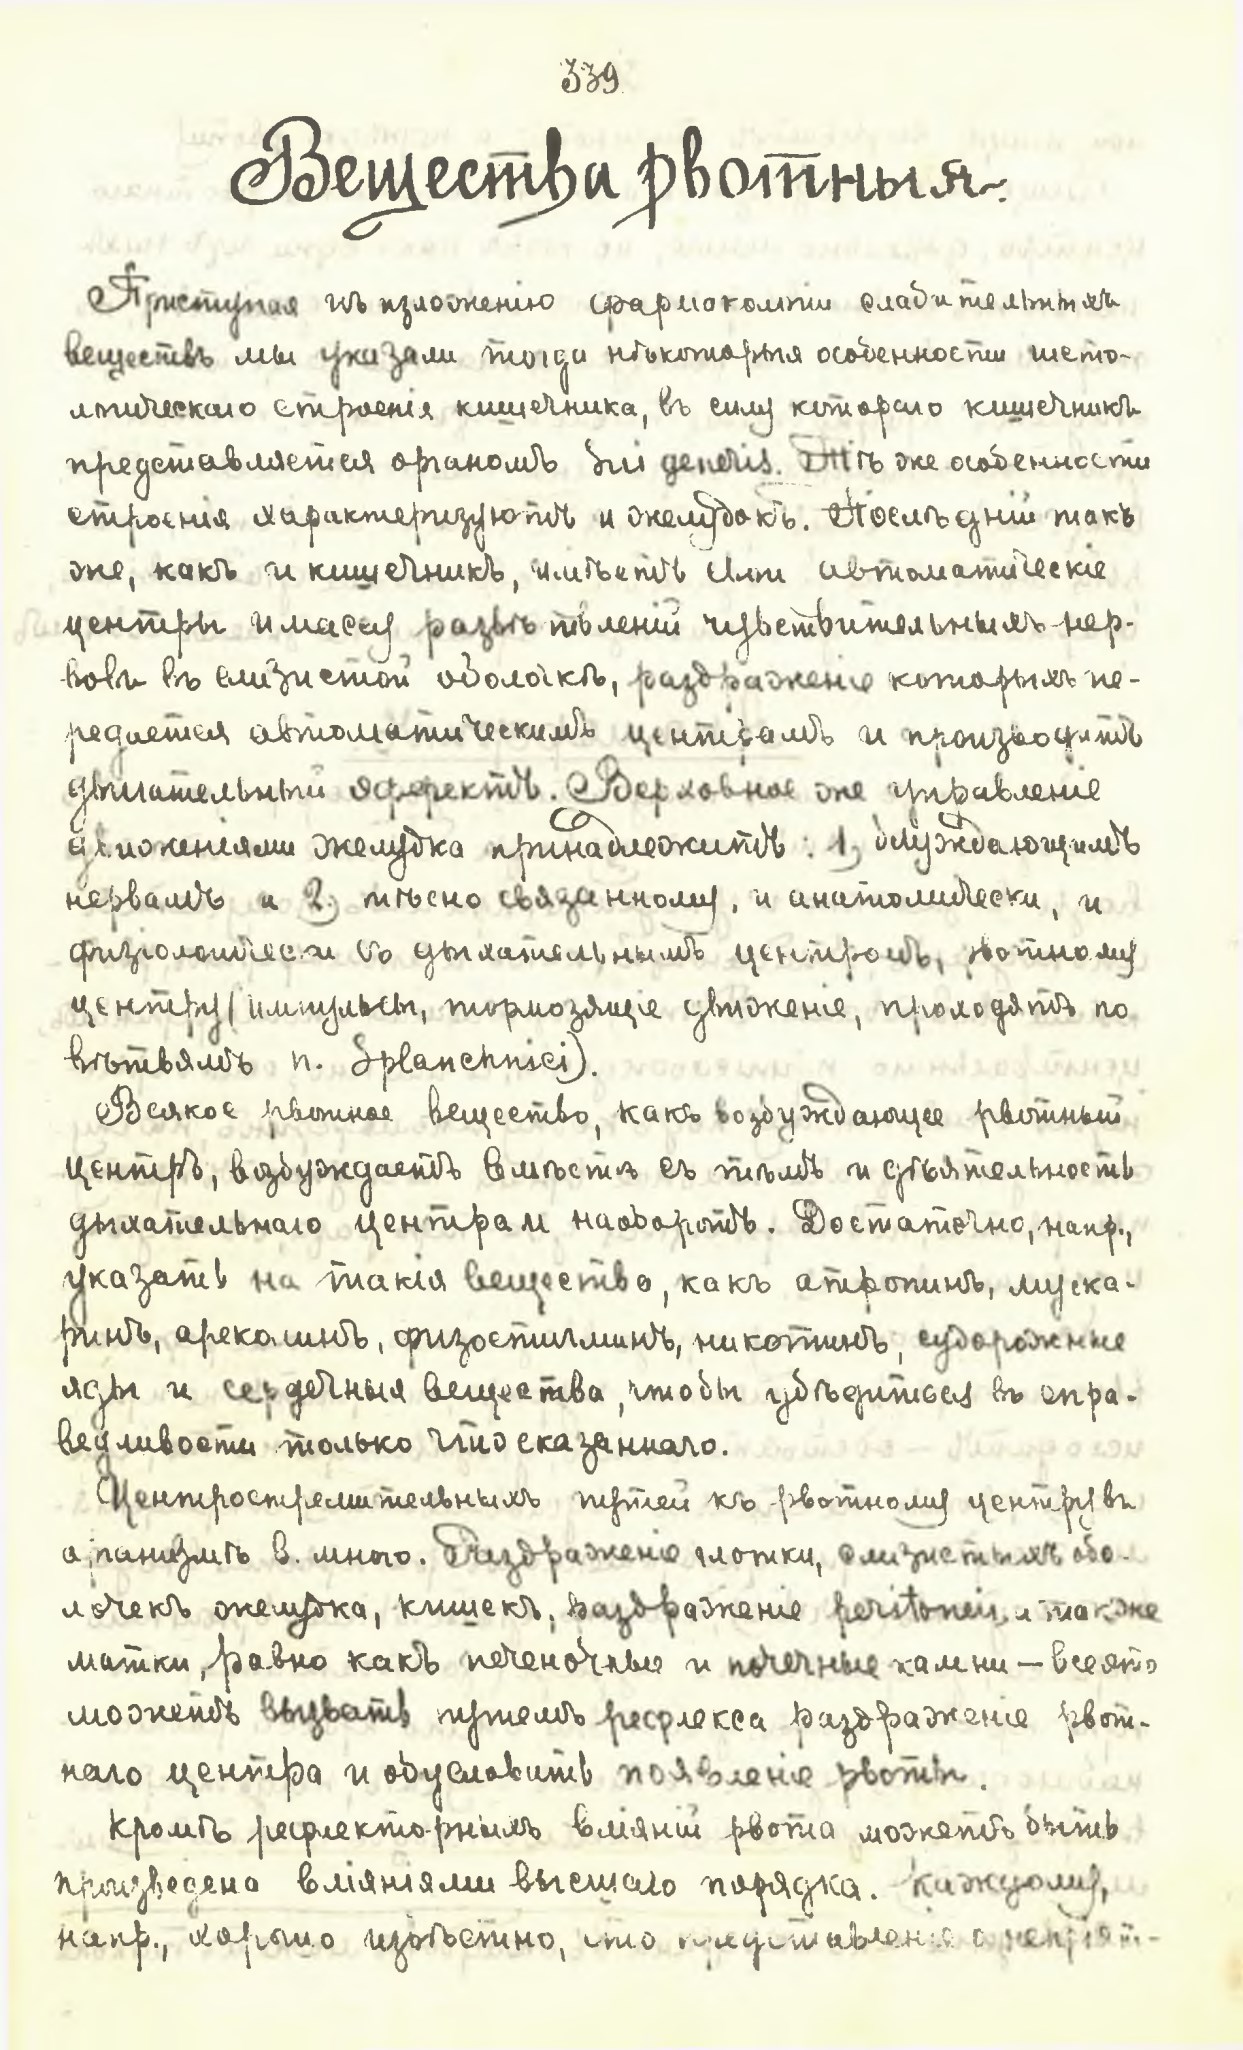 339
Вещества рвотныя.
Приступая къ изложенію фармокологіи слабительныхъ
веществъ мы указали тогда нѣкоторыя особенности гисто-
логическаго строенія кишечника, въ силу котораго кишечникъ
представляется органомъ sui generis. Тѣ же особенности
строенія характеризуютъ и желудокъ. Послѣдній такъ
же, какъ и кишечникъ, имѣетъ свои автоматическіе
центры и массу развѣтвленій чувствительныхъ нер-
вовъ въ слизистой оболочкѣ, раздраженіе которыхъ пе-
редается автоматическимъ центрамъ и производитъ
двигательный эффектъ. Верховное же управленіе
движеніями желудка принадлежитъ: 1, блуждающимъ
нервамъ и 2) тѣсно связанному, и анатомически, и
физіологически со дыхательнымъ центромъ, рвотному
центру (импульсы, тормозящіе движеніе, проходятъ по
вѣтвямъ n. Splanchnici).
Всякое рвотное вещество, какъ возбуждающее рвотный
центръ, возбуждаетъ вмѣстѣ съ тѣмъ и дѣятельность
дыхательнаго центра и наоборотъ. Достаточно, напр.,
указать на такія вещество, какъ атропинъ, муска-
ринъ, ареколинъ, физостигминъ, никотинъ, судорожные
яды и сердечныя вещества, чтобы убѣдиться въ спра-
ведливости только что сказаннаго.
Центростремительныхъ путей къ рвотному центру въ
организмѣ в. много. Раздраженіе глотки, слизистыхъ обо-
лочекъ желудка, кишекъ, раздраженіе peritonei, а также
матки, равно какъ печеночные и почечные камни — все это
можетъ вызвать путемъ рефлекса раздраженіе рвот-
наго центра и обусловить появленіе рвоты.
Кромѣ рефлекторныхъ вліяній рвота можетъ быть
произведена вліяніями высшаго порядка. Каждому,
напр., хорошо извѣстно, что представленіе о непріят-